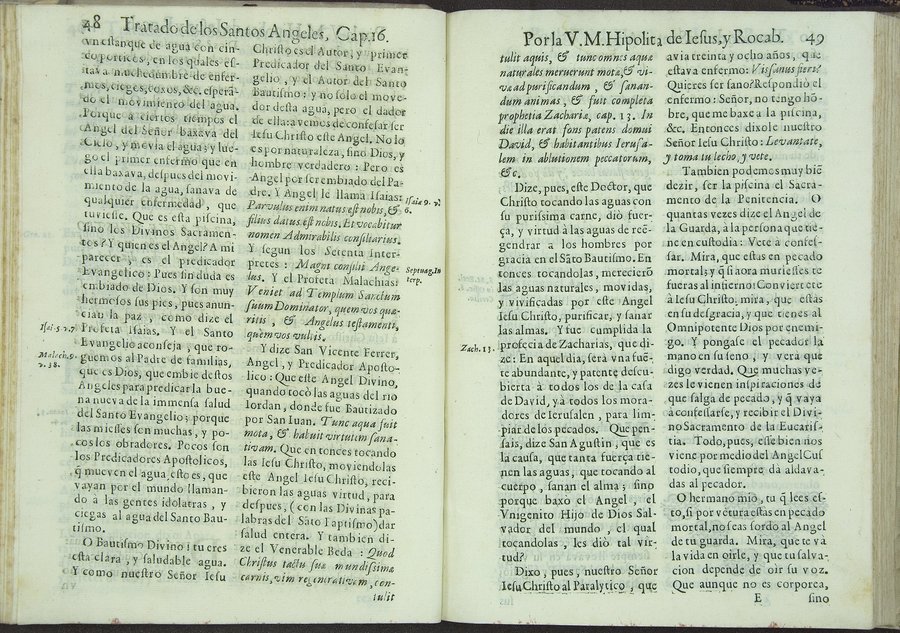 48 Tratado de los Santos Angeles, Cap. 16.
vn estanque de agua con cin-
co porticos, en los quales es-
tava muchedumbre de enfer-
mos, ciegos, coxos, &c. esperã-
do el movimiento del agua.
Porque à ciertos tiempos el
Angel del Señor baxava del
Cielo, y movia el agua; y lue-
go el primer enfermo que en
ella baxava, despues del movi-
miento de la agua, sanava de
qualquier enfermedad, que
tuviesse. Que es esta piscina,
sino los Divinos Sacramen-
tos? Y quien es el Angel? A mi
parecer, es el predicador
Evangelico: Pues sin duda es
embiado de Dios. Y son muy
hermosos sus pies, pues anun-
cian la paz, como dize el
Profeta Isaias. Y el Santo
Evangelio aconseja, que ro-
guemos al Padre de familias,
que es Dios, que embie destos
Angeles para predicar la bue-
na nueva de la immensa salud
del Santo Evangelio; porque
las miesses son muchas, y po-
cos los obradores. Pocos son
los Predicadores Apostolicos,
q̃ mueven el agua, esto es, que
vayan por el mundo llaman-
do a las gentes idolatras, y
ciegas al agua del Santo Bau-
tismo.
O Bautismo Divino! tu eres
esta clara, y saludable agua.
Y como nuestro Señor Iesu
Isai. 52. 7.
Malach. 9.
v. 38.
Christo es el Autor, y primer
Predicador del Santo Evan-
gelio, y el Autor del Santo
Bautismo: y no solo el move-
dor desta agua, pero el dador
de ella: avemos de confesar ser
Iesu Christo este Angel. No lo
es por naturaleza, sino Dios, y
hombre verdadero: Pero es
Angel por ser embiado del Pa-
dre. Y Angel le llama Isaias:
Parvulus enim natus est nobis, &
filius datus est nobis. Et vocabitur
nomen Admirabilis consiliarius.
Y segun los Setenta Inter-
pretes: Magni consilii Ange-
lus. Y el Profeta Malachias:
Veniet ad Templum Sanctum
suum Dominator, quem vos quæ-
ritis, & Angelus testamenti,
quem vos vultis.
Y dize San Vicente Ferrer,
Angel, y Predicador Aposto-
lico: Que este Angel Divino,
quando tocò las aguas del rio
Iordan, donde fue Bautizado
por San Iuan. Tunc aqua fuit
mota, & habuit virtutem sana-
tivam. Que en tonces tocando
las Iesu Christo, moviendolas
este Angel Iesu Christo, reci-
bieron las aguas virtud, para
despues, (con las Divinas pa-
labras del Sãto Baptismo) dar
salud entera. Y tambien di-
ze el Venerable Beda: Quod
Christus tactu suæ mundissimæ
carnis, vim regenerativam, con-
tulit
Isaiæ 9. v.
6.
Septuag. In
terp.
Por la V. M. Hipolita de Iesus, y Rocab. 49
tulit aquis, & tunc omnes aquæ
naturales meruerunt motæ, & vi-
væ ad purificandum, & sanan-
dum animas, & fuit completa
prophetia Zachariæ, cap. 13. In
die illa erat fons patens domui
David, & habitantibus Ierusa-
lem in ablutionem peccatorum,
&c.
Dize, pues, este Doctor, que
Christo tocando las aguas con
su purissima carne, diò fuer-
ça, y virtud à las aguas de reẽ-
gendrar a los hombres por
gracia en el Sãto Bautismo. En
tonces tocandolas, merecierõ
las aguas naturales, movidas,
y vivificadas por este Angel
Iesu Christo, purificar, y sanar
las almas. Y fue cumplida la
profecia de Zacharias, que di-
ze: En aquel dia, serà vna fuẽ-
te abundante, y patente descu-
bierta à todos los de la casa
de David, y à todos los mora-
dores de Ierusalen, para lim-
piar de los pecados. Que pen-
sais, dize San Agustin, que es
la causa, que tanta fuerça tie-
nen las aguas, que tocando al
cuerpo, sanan el alma; sino
porque baxò el Angel, el
Vnigenito Hijo de Dios Sal-
vador del mundo, el qual
tocandolas, les diò tal vir-
tud?
Dixo, pues, nuestro Señor
Iesu Christo al Paralytico, que
Zach. 13.
avia treinta y ocho años, que
estava enfermo: Vis sanus fieri?
Quieres ser sano? Respondiò el
enfermo: Señor, no tengo hõ-
bre, que me baxe a la piscina,
&c. Entonces dixole nuestro
Señor Iesu Christo: Levantate,
y toma tu lecho, y vete.
Tambien podemos muy biẽ
dezir, ser la piscina el Sacra-
mento de la Penitencia. O
quantas vezes dize el Angel de
la Guarda, à la persona que tie-
ne en custodia: Vete à confes-
sar. Mira, que estàs en pecado
mortal; y q̃ si aora muriesses te
fueras al infierno: Convierte te
à Iesu Christo. mira, que estàs
en su desgracia, y que tienes al
Omnipotente Dios por enemi-
go. Y pongase el pecador la
mano en su seno, y verà que
digo verdad. Que muchas ve-
zes le vienen inspiraciones de
que salga de pecado, y q̃ vaya
à confessarse, y recibir el Divi-
no Sacramento de la Eucaris-
tia. Todo, pues, este bien nos
viene por medio del Angel Cus
todio, que siempre dà aldava-
das al pecador.
O hermano mio, tu q̃ lees es-
to, si por vẽtura estàs en pecado
mortal, no seas sordo al Angel
de tu guarda. Mira, que te và
la vida en oirle, y que tu salva-
cion depende de oir su voz.
Que aunque no es corporea,
E sino